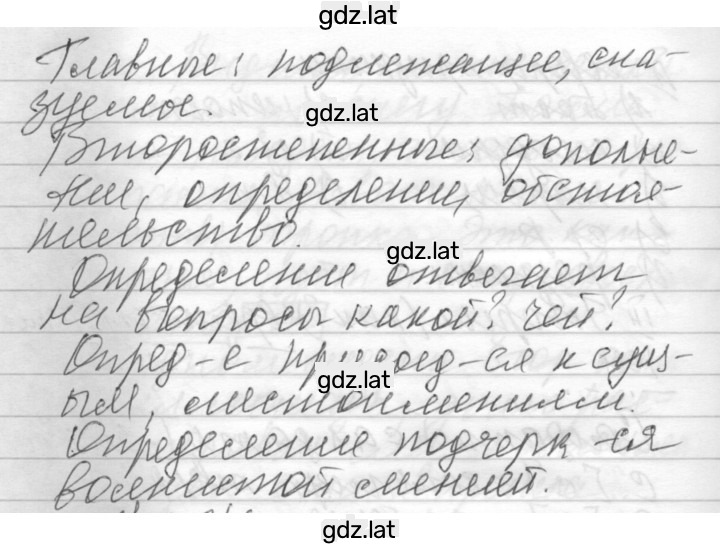 gdz.lat
Главные: подлежащее, ска-
зуемое.
gdz.lat
Второстепенные: дополне-
ние, определение, обстоя-
тельство.
gdz.lat
Определение отвечает
на вопросы какой? чей?
Опред-е присоед-ся к сущ-
gdz.lat
ым, местоимениям.
Определение подчерк-ся
волнистой линией.
gdz.lat